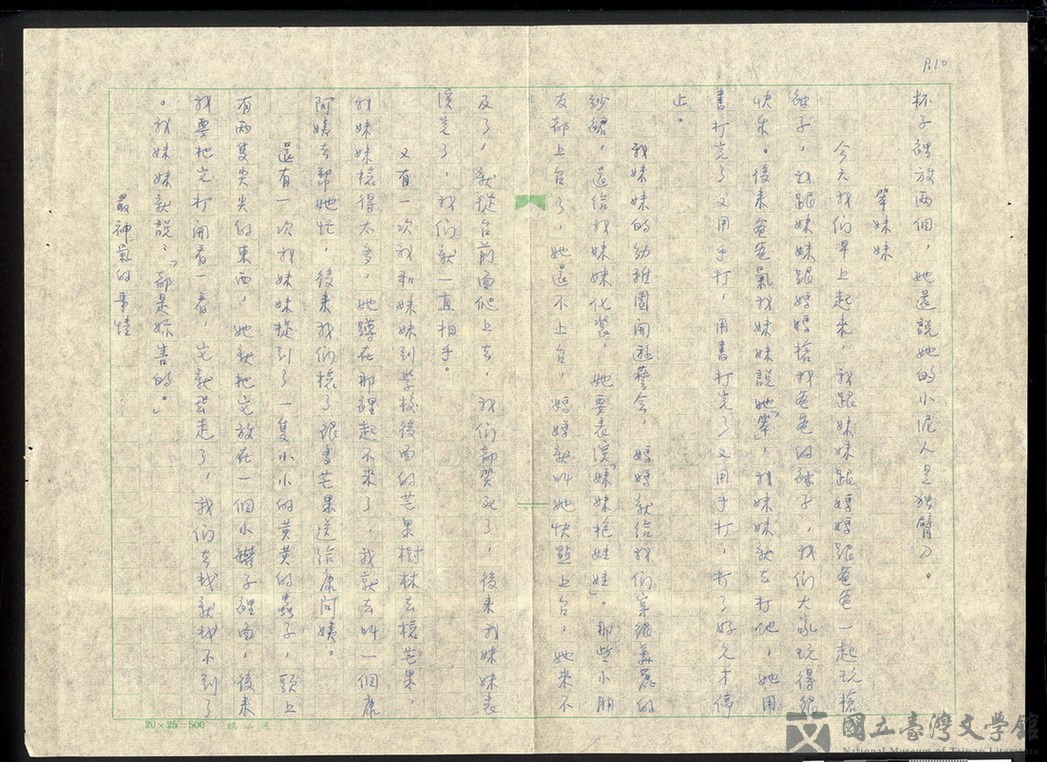 P.10
杯子裡放兩個，她還說她的小泥人是獨臂刀。
笨妹妹
今天我們早上起來，我跟妹妹跟媽媽跟爸爸一起玩搶
被子，我跟妹妹跟媽媽搶我爸爸的被子，我們大家玩得很
快樂。後來爸爸氣我妹妹說她「笨」，我妹妹就去打他，她用
書打完了又用手打，用書打完了又用手打，打了好久才停
止。
我妹妹的幼稚園開遊藝會，媽媽就給我們穿很美麗的
紗裙，還給我妹妹化裝，她要表演「妹妹抱娃娃」。那些小朋
友都上台了，她還不上台，媽媽就叫她快點上台，她來不
及了，就從台前面爬上去，我們都笑死了，後來我妹妹表
演完了，我們就一直拍手。
又有一次我和妹妹到學校後面的芒果樹林去撿芒果，
我妹妹撿得太多，她蹲在那裡起不來了，我就去叫一個康
阿姨去幫她忙，後來我們撿了很多芒果送給康阿姨。
還有一次我妹妹捉到了一隻小小的黃黃的蟲子，頭上
有兩隻尖尖的東西，她就把它放在一個小罐子裡面，後來
我要把它打開看一看，它就飛走了，我們去找就找不到了
。我妹妹就說：「都是妳害的。」
最神氣的事情
20×25=500
國立臺灣文學館
National Museum of Taiwan Literature